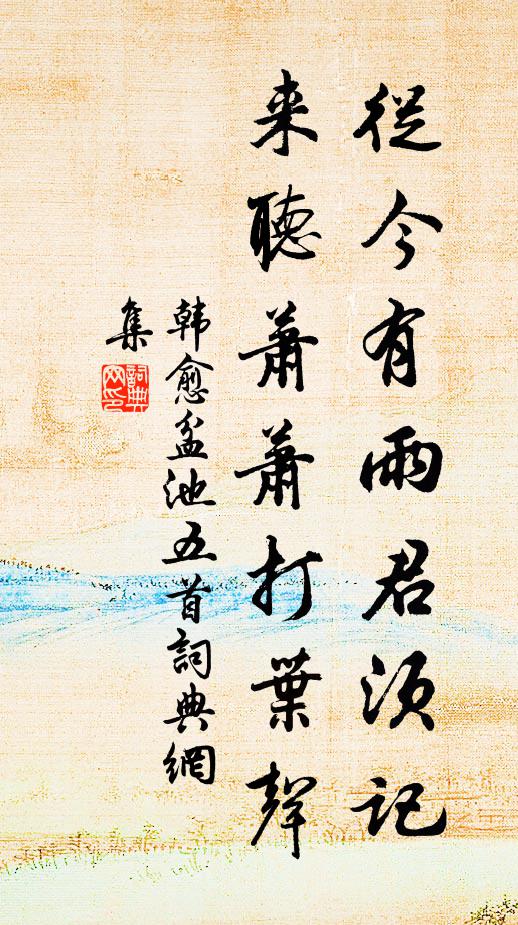 從今有雨君須記
来聽蕭蕭打葉聲
韩愈盆池五首詞典網
集
詞典
网印